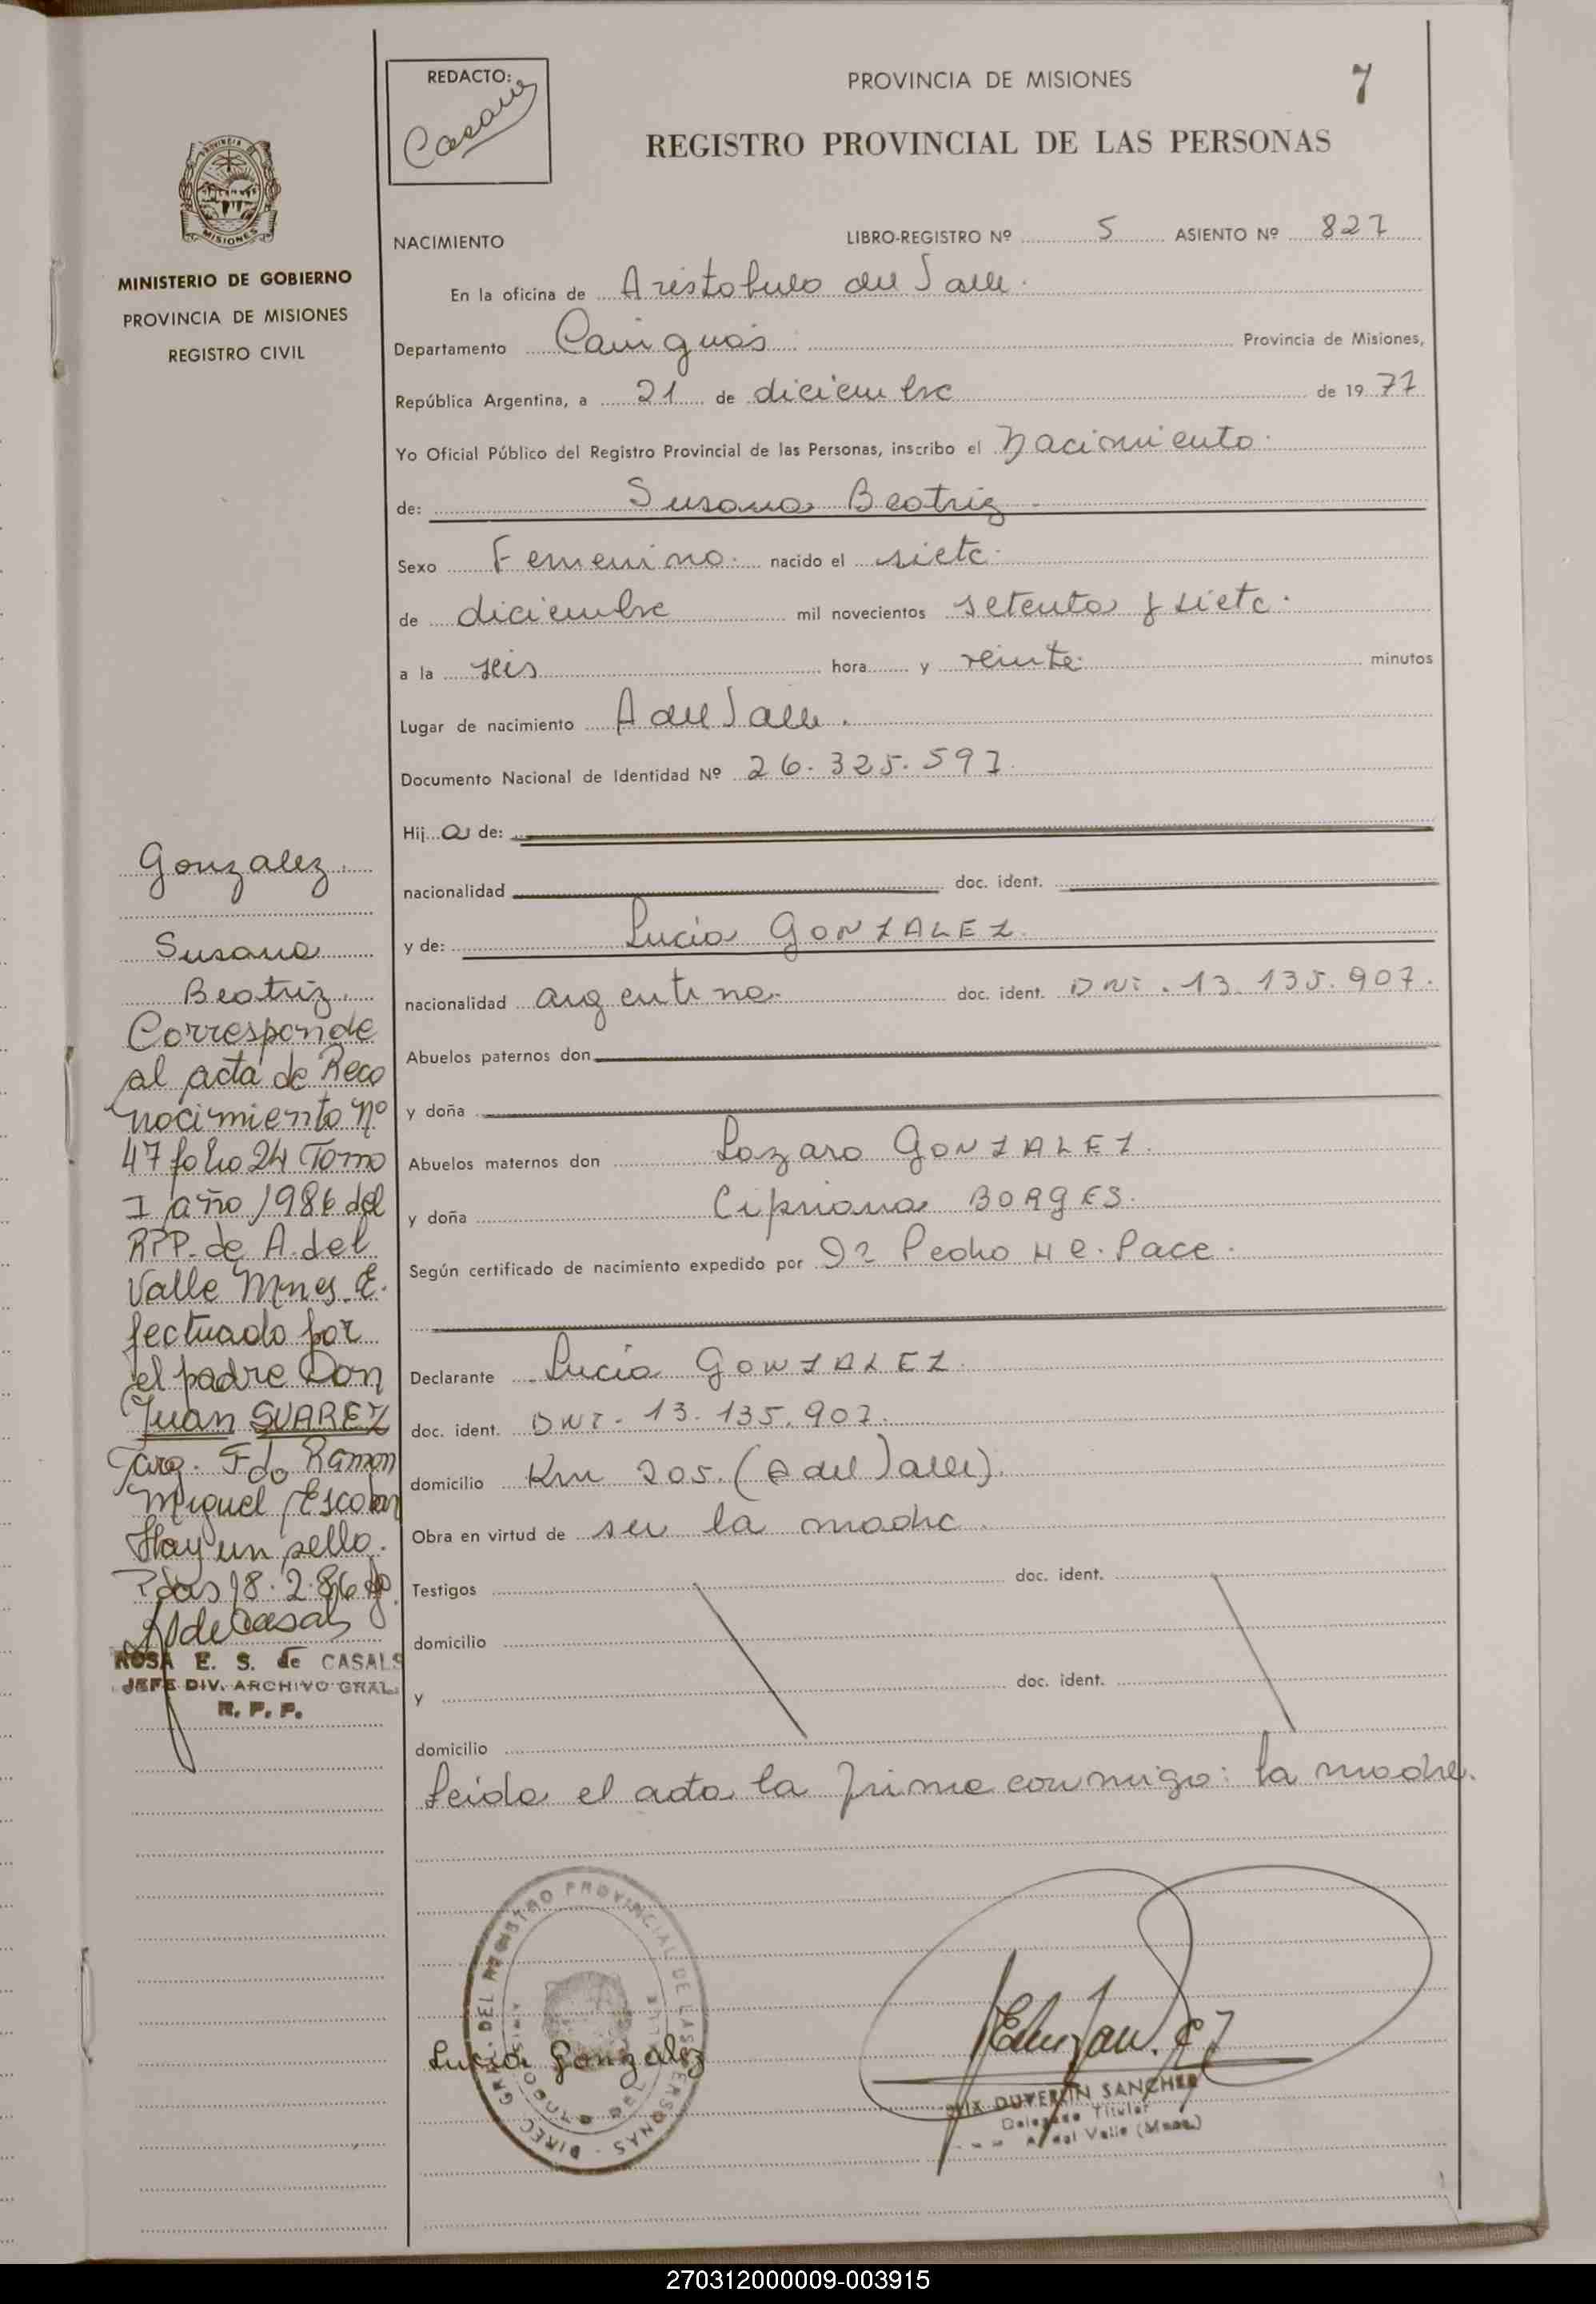 REDACTO:
PROVINCIA DE MISIONES
7
REGISTRO PROVINCIAL DE LAS PERSONAS
PROVINCIA DE
MISIONES
MINISTERIO DE GOBIERNO
PROVINCIA DE MISIONES
REGISTRO CIVIL
NACIMIENTO LIBRO-REGISTRO Nº 5 ASIENTO Nº 827
En la oficina de Aristobulo del Valle.
Departamento Cainguás Provincia de Misiones,
República Argentina, a 21 de diciembre de 19 77
Yo Oficial Público del Registro Provincial de las Personas, inscribo el nacimiento.
de: Susana Beatriz
Sexo Femenino. nacido el siete.
de diciembre mil novecientos setenta y siete.
a la seis hora y veinte. minutos
Lugar de nacimiento A del Valle.
Documento Nacional de Identidad Nº 26.325.597
Hij a de:
nacionalidad doc. ident.
y de: Lucia GONZALEZ.
nacionalidad argentina. doc. ident. DNI. 13.135.907.
Abuelos paternos don
y doña
Abuelos maternos don Lazaro GONZALEZ.
y doña Cipriana BORGES.
Según certificado de nacimiento expedido por Dr Pedro H C. Pace.
Declarante Lucia GONZALEZ.
doc. ident. DNI. 13.135.907.
domicilio Km 205. (A del Valle).
Obra en virtud de ser la madre.
Testigos doc. ident.
domicilio
y doc. ident.
domicilio
Leida el acta la firma conmigo: la madre.
Gonzalez.
Susana
Beatriz.
Corresponde
al acta de Reco
nocimiento Nº
47 folio 24 Tomo
I año 1986 del
RPP. de A. del
Valle Mnes. E.
fectuado por
el padre Don
Juan SUAREZ
arg. Fdo Ramon
Miguel Escobar
Hay un sello.
Pdas 18.2.86
ROSA E. S. de CASALS
JEFE DIV. ARCHIVO GRAL.
R. P. P.
DIREC. GRAL. DEL REGISTRO PROVINCIAL DE LAS PERSONAS
Lucia Gonzalez
DUVERLIN SANCHEZ
Delegado Titular
A. del Valle (Mnes.)
270312000009-003915